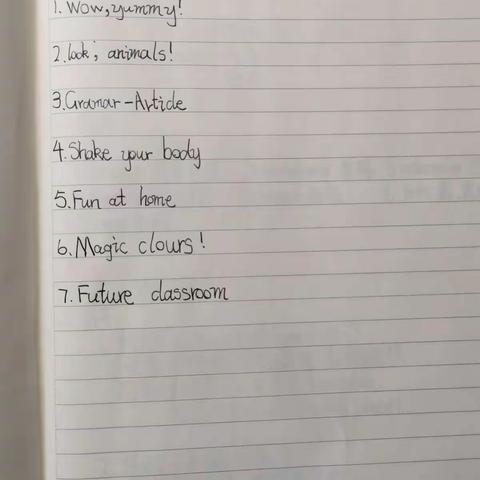 1. Wow, yummy!
2. look, animals!
3. Gramar-Article
4. Shake your body
5. Fun at home
6. Magic clours!
7. Future classroom